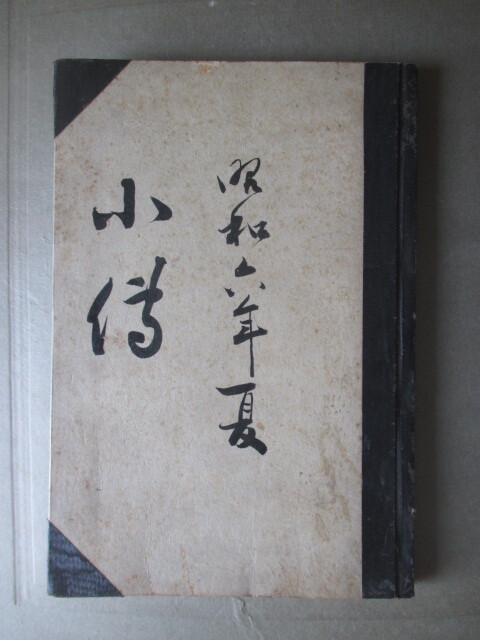 昭和六年夏
小傳